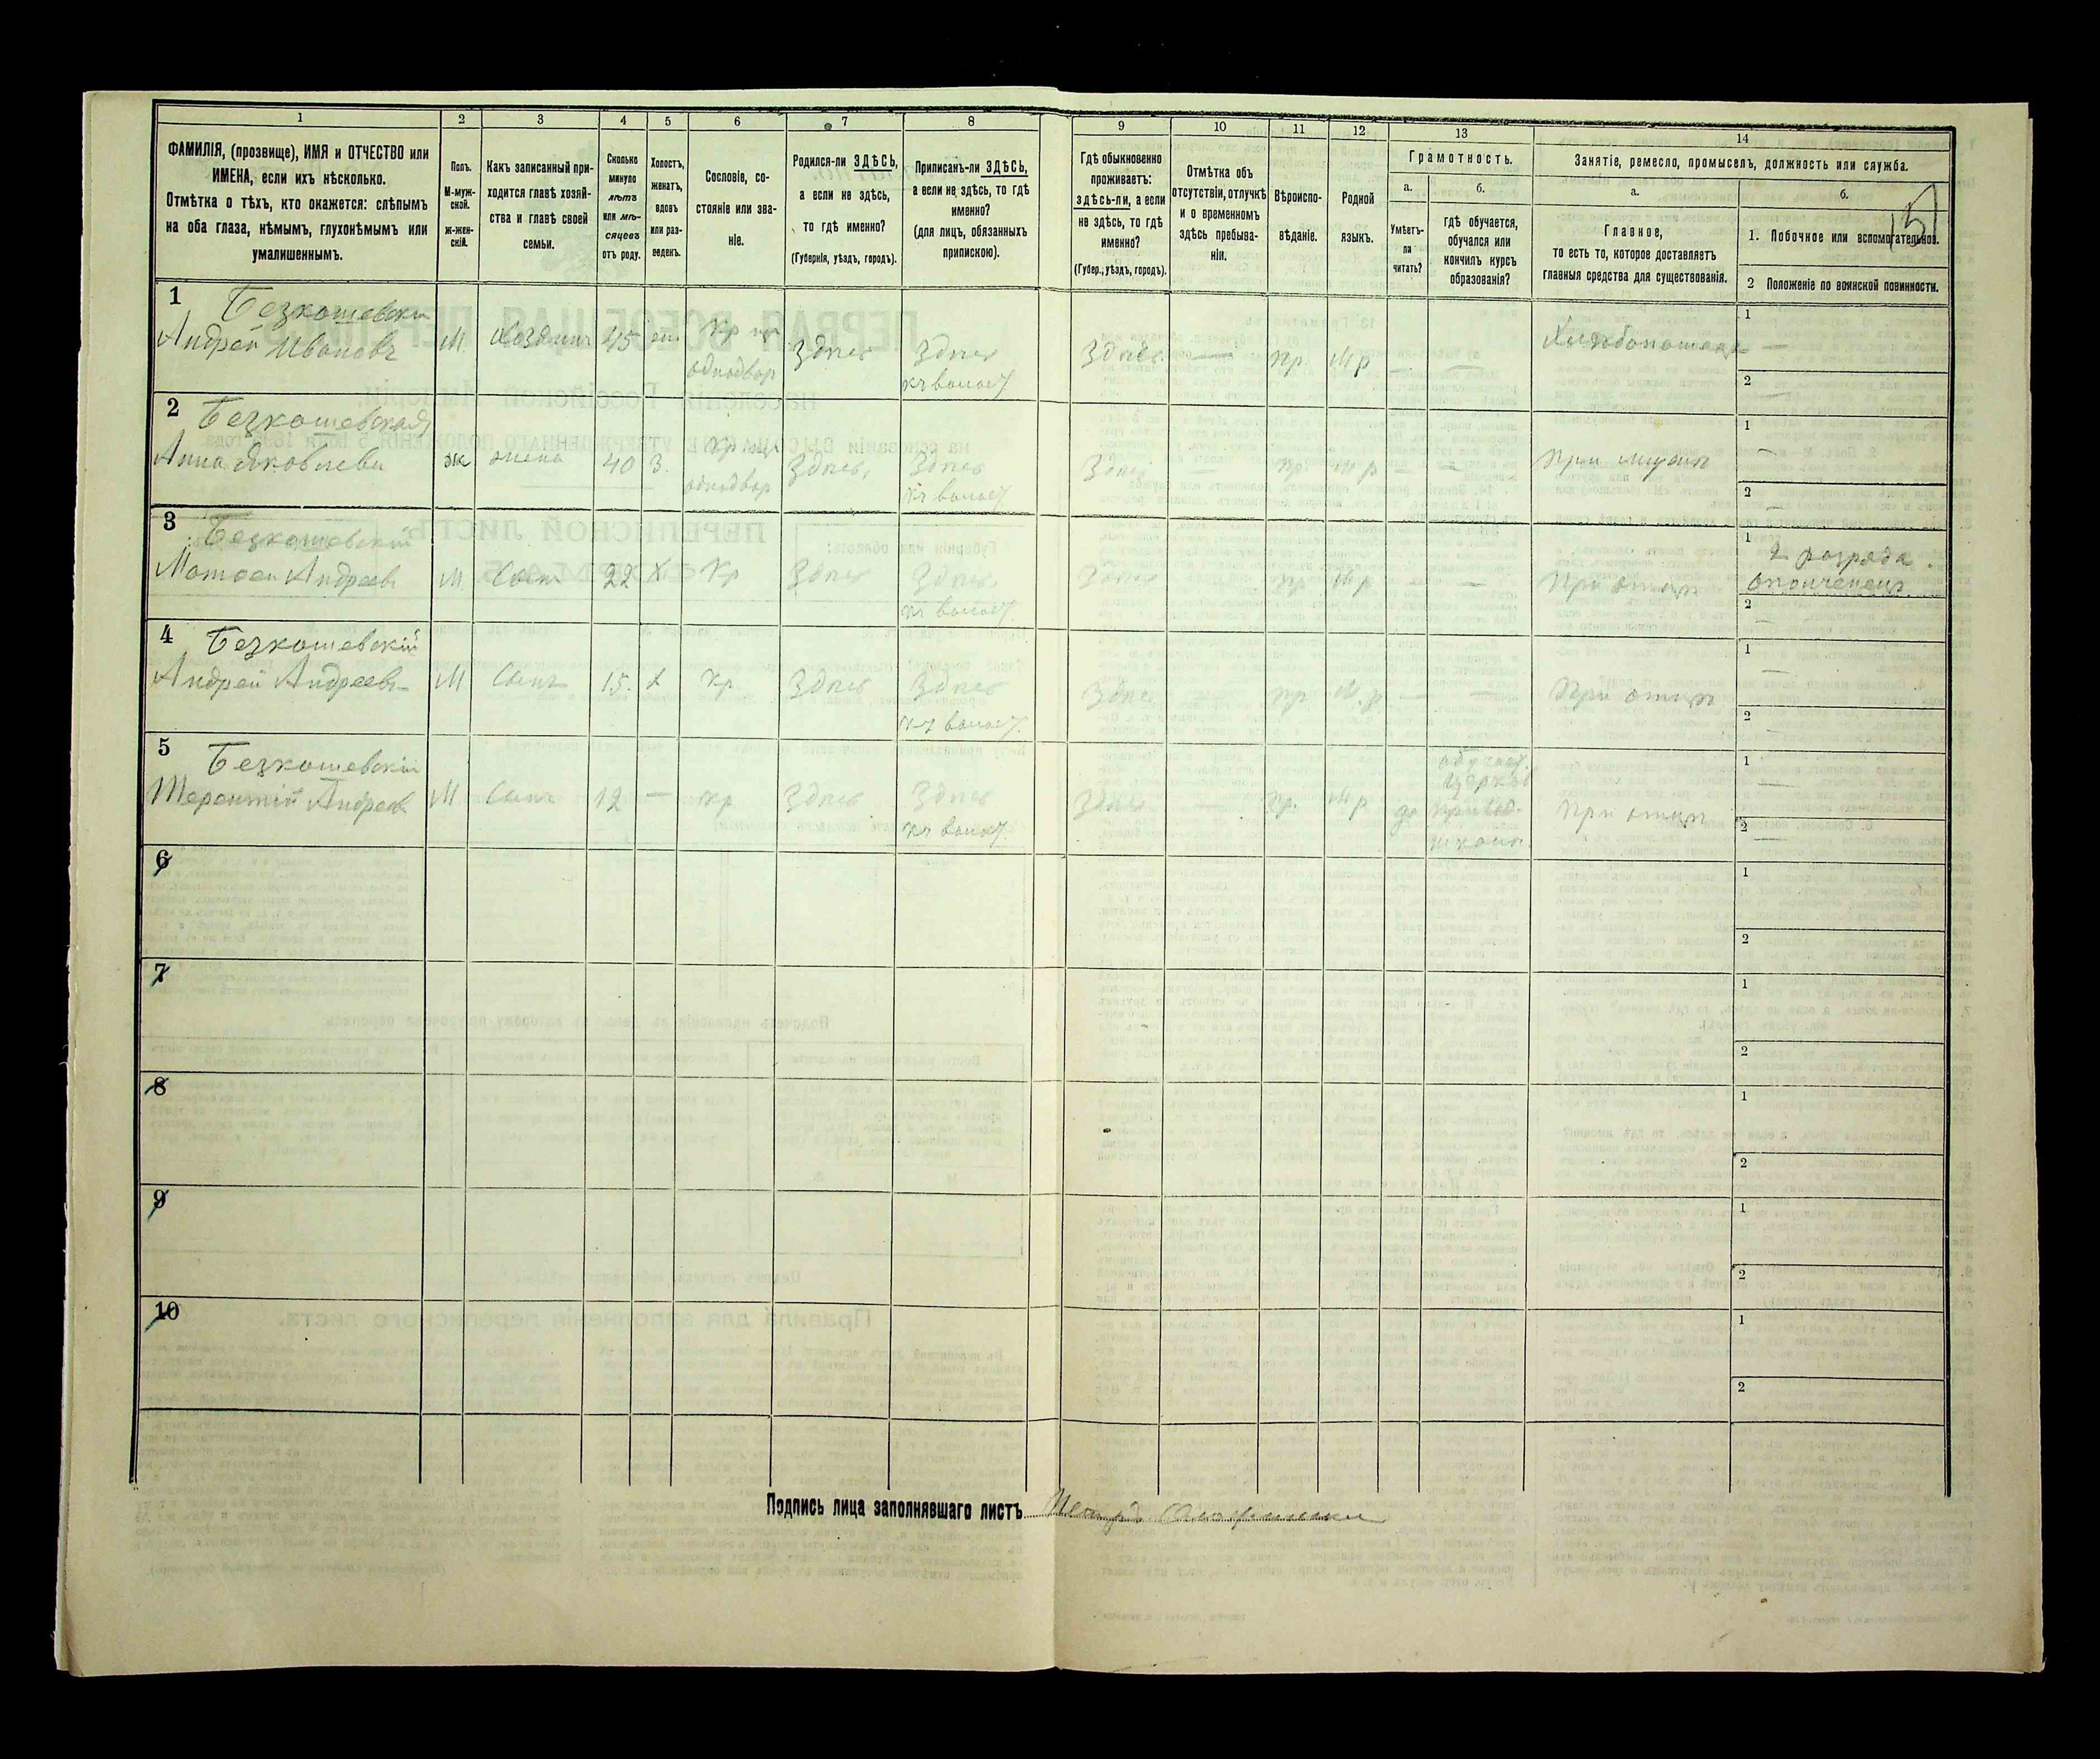 1
2
3
4
5
6
7
8
9
10
11
12
13
14
ФАМИЛІЯ, (прозвище), ИМЯ и ОТЧЕСТВО или
ИМЕНА, если ихъ нѣсколько.
Отмѣтка о тѣхъ, кто окажется: слѣпымъ
на оба глаза, нѣмымъ, глухонѣмымъ или
умалишеннымъ.
Полъ.
М-муж-
ской.
ж-жен-
скій.
Какъ записанный при-
ходится главѣ хозяй-
ства и главѣ своей
семьи.
Сколько
минуло
лѣтъ
или мѣ-
сяцевъ
отъ роду.
Холостъ,
женатъ,
вдовъ
или раз-
веденъ.
Сословіе, со-
стояніе или зва-
ніе.
Родился-ли ЗДѢСЬ,
а если не здѣсь,
то гдѣ именно?
(Губернія, уѣздъ, городъ).
Приписанъ-ли ЗДѢСЬ,
а если не здѣсь, то гдѣ
именно?
(для лицъ, обязанныхъ
припискою).
Гдѣ обыкновенно
проживаетъ:
здѣсь-ли, а если
не здѣсь, то гдѣ
именно?
(Губер., уѣздъ, городъ).
Отмѣтка объ
отсутствіи, отлучкѣ
и о временномъ
здѣсь пребыва-
ніи.
Вѣроиспо-
вѣданіе.
Родной
языкъ.
Грамотность.
а.
Умѣетъ-
ли
читать?
б.
гдѣ обучается,
обучался или
кончилъ курсъ
образованія?
Занятіе, ремесло, промыселъ, должность или служба.
а.
Главное,
то есть то, которое доставляетъ
главныя средства для существованія.
б.
1. Побочное или вспомогательное.
2 Положеніе по воинской повинности.
15
1
Безкошевски
Андрей Ивановъ
М.
Хозяинъ
45
Здѣсь
Здѣсь
Здѣсь
—
пр.
М р
—
—
1
—
2
—
2
Безкошевская
Анна Яковлева
ж
жена
40
З.
однодвор
Здѣсь,
Здѣсь
Здѣсь
—
пр
М р
—
—
При мужѣ
1
—
2
—
3
Безкошевскій
Матвей Андреевъ
М
Сынъ
22
Х
Кр
Здѣсь
Здѣсь
Здѣсь
пр
М р
—
—
При отцѣ
1
2 розряда
ополченецъ
2
—
4
Безкошевскій
Андрей Андреевъ
М
Сынъ
15.
х
Кр
Здѣсь
Здѣсь
Здѣсь
—
пр
М. р
—
—
При отцѣ
1
—
2
—
5
Безкошевскій
Терентій Андреев
М
Сынъ
12
—
кр
Здѣсь
Здѣсь
Здѣсь
—
пр.
М р
да
При отцѣ
1
—
2
—
6
1
2
7
1
2
8
1
2
9
1
2
10
1
2
Подпись лица заполнявшаго листъ
Петръ